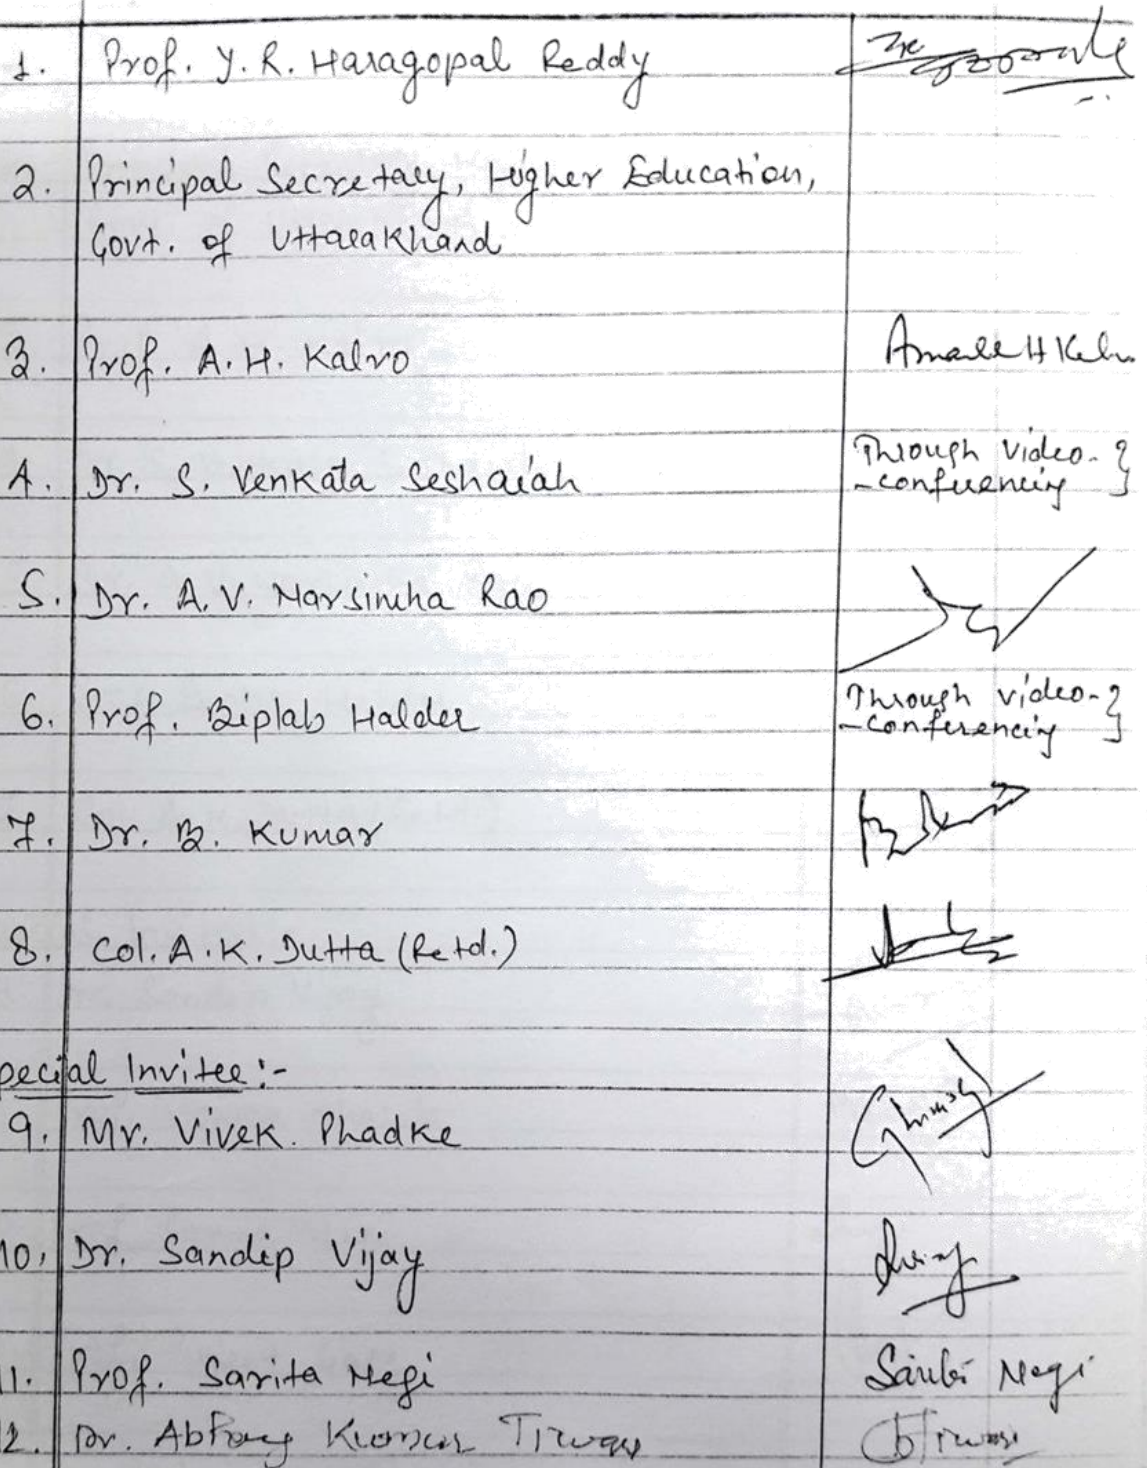 1. Prof. Y. R. Haragopal Reddy
2. Principal Secretary, Higher Education,
Govt. of Uttarakhand
3. Prof. A. H. Kalro
4. Dr. S. Venkata Seshaiah Through Video-
-conferencing
5. Dr. A. V. Narsimha Rao
6. Prof. Biplab Halder Through Video-
-conferencing
7. Dr. B. Kumar
8. Col. A. K. Dutta (Retd.)
pecial Invitee:-
9. Mr. Vivek. Phadke
10. Dr. Sandip Vijay
11. Prof. Sarita Negi Negi
2. Dr. Kumar